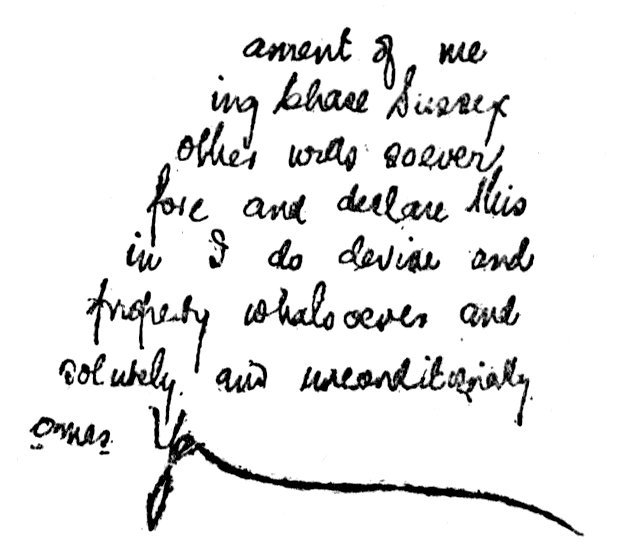 ament of me
ing Chase Sussex
other wills soever
fore and declare this
in I do devise and
property whatsoever and
solutely and unconditionally
omas